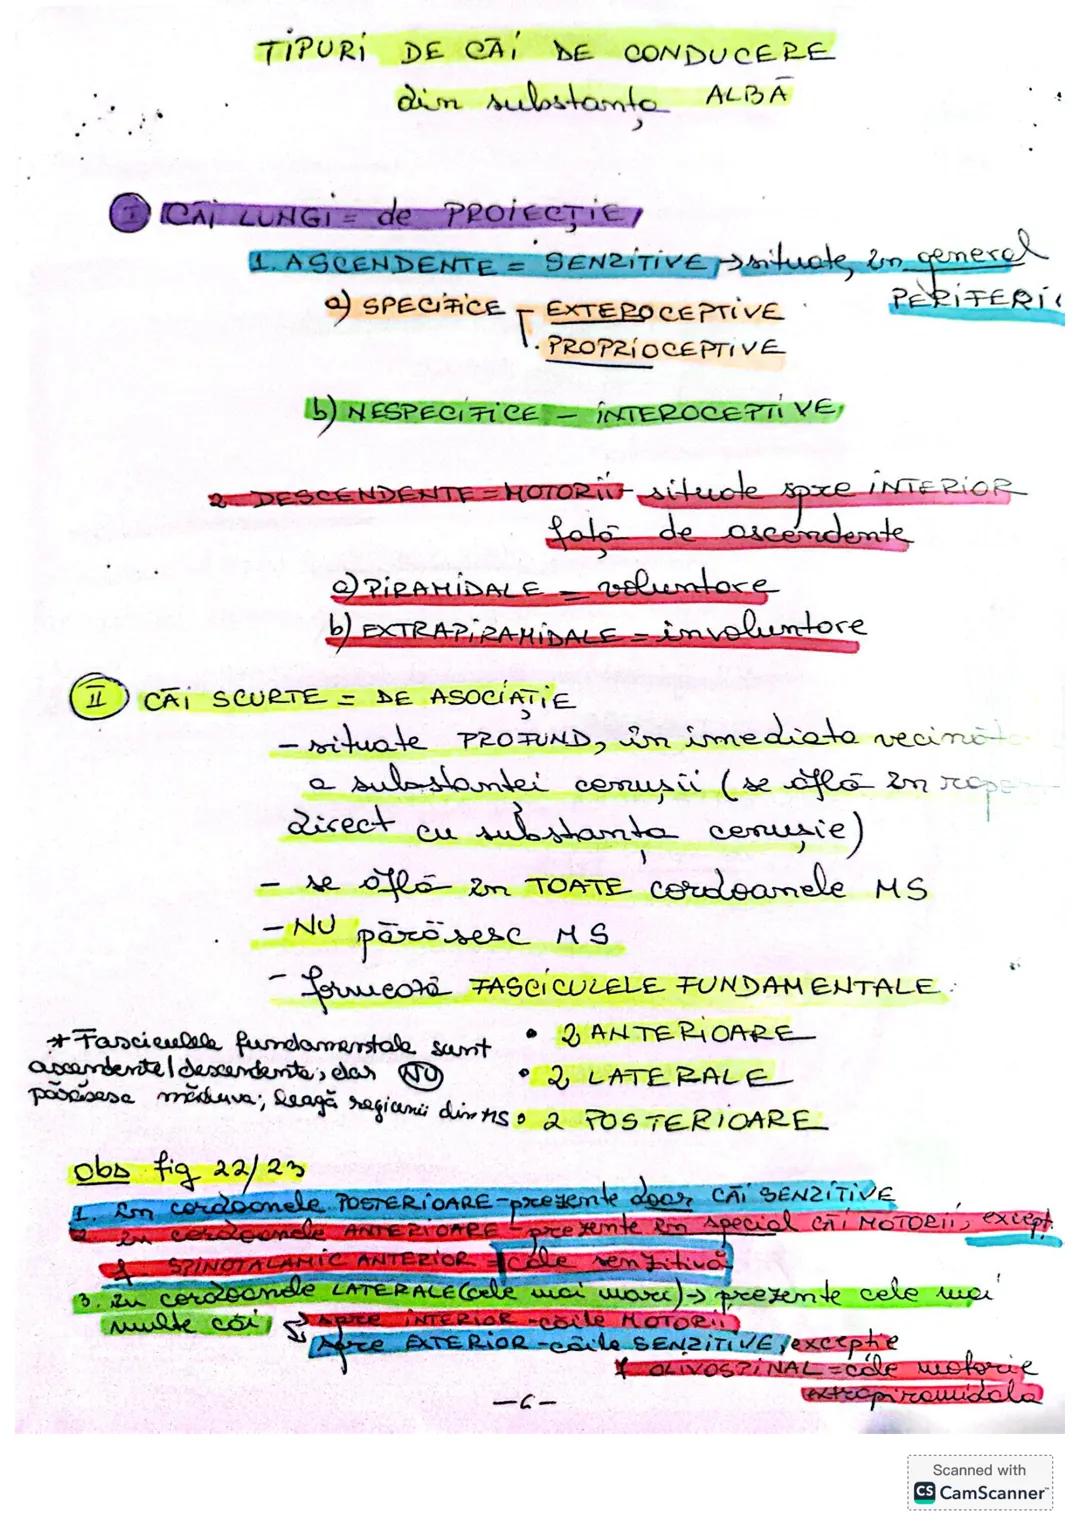 TIPURI DE CĂI DE CONDUCERE
din substanța ALBĂ
I CĂI LUNGI = de PROIECȚIE
1. ASCENDENTE = SENZITIVE → situate, în general
PERIFERIC
a) SPECIFICE EXTEROCEPTIVE
PROPRIOCEPTIVE
b) NESPECIFICE - INTEROCEPTIVE
2. DESCENDENTE = MOTORII - situate spre INTERIOR
față de ascendente
a) PIRAMIDALE = voluntare
b) EXTRAPIRAMIDALE = involuntare
II CĂI SCURTE = DE ASOCIAȚIE
- situate PROFUND, în imediata vecinăt
a substanței cenușii (se află în rapor
direct cu substanța cenușie)
- se află în TOATE cordoanele MS
- NU părăsesc MS
- formează FASCICULELE FUNDAMENTALE:
* Fasciculele fundamentale sunt
ascendente/descendente, dar NU
părăsesc măduva; leagă regiuni din MS
• 2 ANTERIOARE
• 2 LATERALE
• 2 POSTERIOARE
Obs fig 22/23
1. în cordoanele POSTERIOARE - prezente doar CĂI SENZITIVE
2. în cordoanele ANTERIOARE - prezente în special CĂI MOTORII, except.
SPINOTALAMIC ANTERIOR = cale senzitivă
3. În cordoanele LATERALE (cele mai mari) → prezente cele mai
multe căi spre INTERIOR - căile MOTORII
spre EXTERIOR - căile SENZITIVE, excepție
OLIVOSPINAL = cale motorie
extrapiramidala
-6-
Scanned with
CS CamScanner